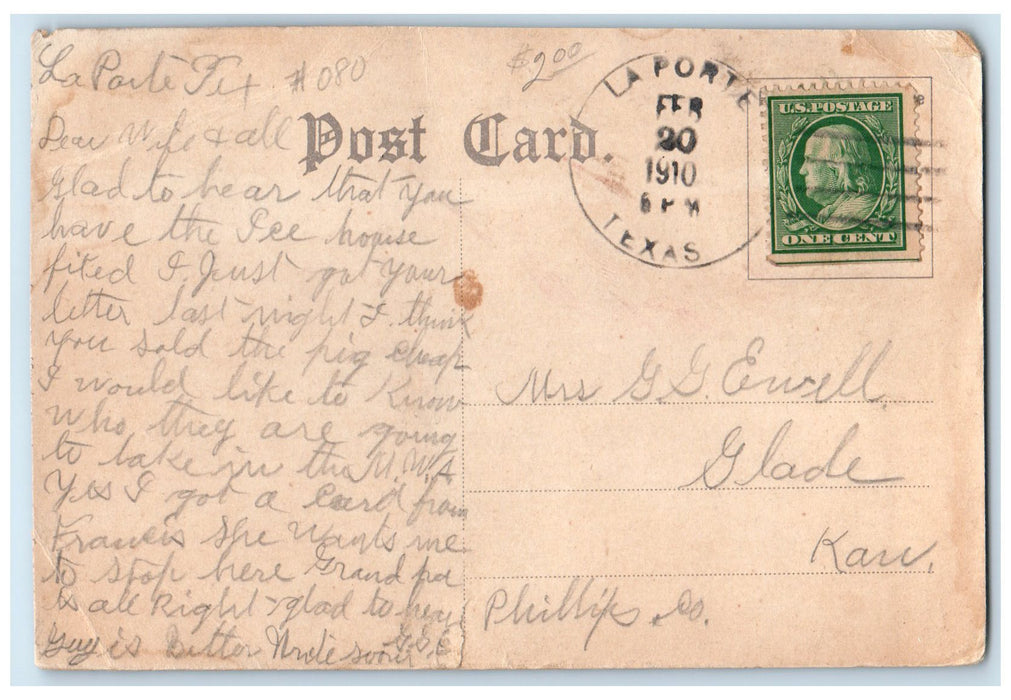 La Porte Tex #080
$2.00
Post Card.
LA PORTE
FEB
20
1910
6 PM
TEXAS
U.S. POSTAGE
ONE CENT
Dear Wife & all
Glad to hear that you
have the Ice house
fited I Just got your
letter last night I think
you sold the pig cheap
I would like to Know
who they are going
to take in the M.W.A
Yes I got a Card from
Francis She Wants me
to stop here Grand pa
is all Right glad to hear
Guy is Better Write soon
G.G.E
Mrs G.G. Ewell
Glade
Kan.
Phillips Co.